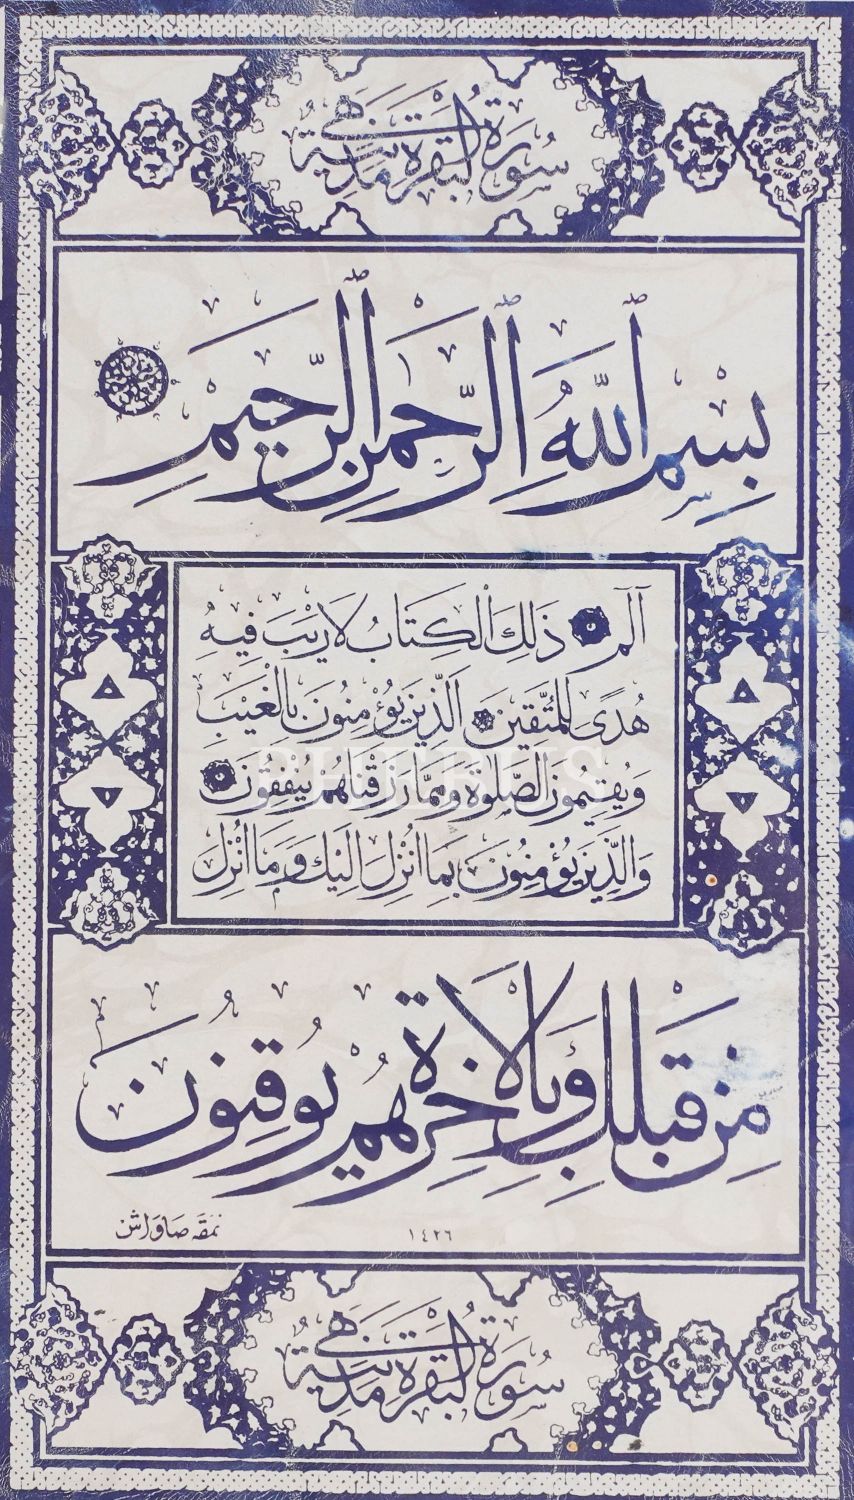 سُورَةُ البَقَرَةِ هِيَ مَدَنِيَّة
بِسْمِ ٱللَّهِ ٱلرَّحْمٰنِ ٱلرَّحِيمِ
الٓمٓ ذَلِكَ الْكِتَابُ لَا رَيْبَ فِيهِ
هُدًى لِلْمُتَّقِينَ اَلَّذِينَ يُؤْمِنُونَ بِالْغَيْبِ
وَيُقِيمُونَ الصَّلٰوةَ وَمِمَّا رَزَقْنَاهُمْ يُنْفِقُونَ
PHEBUS
وَالَّذِينَ يُؤْمِنُونَ بِمَا اُنْزِلَ اِلَيْكَ وَمَا اُنْزِلَ
مِنْ قَبْلِكَ وَبِالْاٰخِرَةِ هُمْ يُوقِنُونَ
١٤٢٦ نمقه صاواش
سُورَةُ البَقَرَةِ هِيَ مَدَنِيَّة